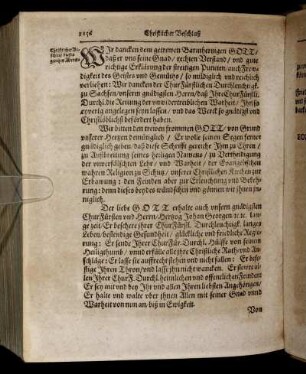 1156 Christlicher Beschluß
WIr dancken dem getrewen Barmhertzigen GOTT/
daß er uns seine Gnad/ rechten Verstand/ und gute
richtige Erklärung der streitigen Puncten/ auch Frew-
digkeit des Geistes und Gemüths/ so mildiglich und reichlich
verliehen: Wir dancken der ChurFürstlichen Durchleuchtigk.
zu Sachsen/ unserm gnädigsten Herrn/ daß Ihr ChurFürstl.
Durchl. die Rettung der
angelegen seyn lassen/ und das Werck so gnädigst und
Christlöblichst befördert haben.
Wir bitten den trewen frommen GOTT/ von Grund
unserer Hertzen demütiglich/ Er wolle seinen Segen ferner
gnädiglich geben/ daß diese Schrifft gereiche Ihm zu Ehren/
zu Außbreitung seines heiligen Namens/ zu Vertheidigung
der unverfälschten Lehr/ und Warheit/ der Evangelischen
wahren Religion zu Schutz/ unserer Christlichen Kirchen zur
Erbauung: den Feinden aber zur Erleuchtung und Bekeh-
rung: denn dieses beydes wünschen und gönnen wir ihnen in-
niglich.
Der liebe GOTT erhalte auch unsern gnädigsten
ChurFürsten und Herrn/ Hertzog Johan Georgen/ ꝛc. lan-
ge zeit: Er beschere ihrer ChurFürstl. Durchleuchtigk. langes
Leben/ beständige Gesundheit/ glückliche und friedliche Regie-
rung: Er sende Ihrer ChurF. Durchl. Hülffe von seinem
Heiligthumb/ und erfülle alle ihre Christliche Rath und An-
schläge: Er lasse sie auffrecht stehen und nicht fallen: Er befe-
stige Ihren Thron/ und lasse ihn nicht wancken. Er
len Ihrer ChurF. Durchl. heimlichen und öffentlichen Feinden:
Er sey mit und bey Ihr und allen Ihren liebsten Angehörigen/
Er halte und walte über ihnen Allen mit seiner Gnad unnd
Warheit von nun an/ biß in Ewigkeit.
Von